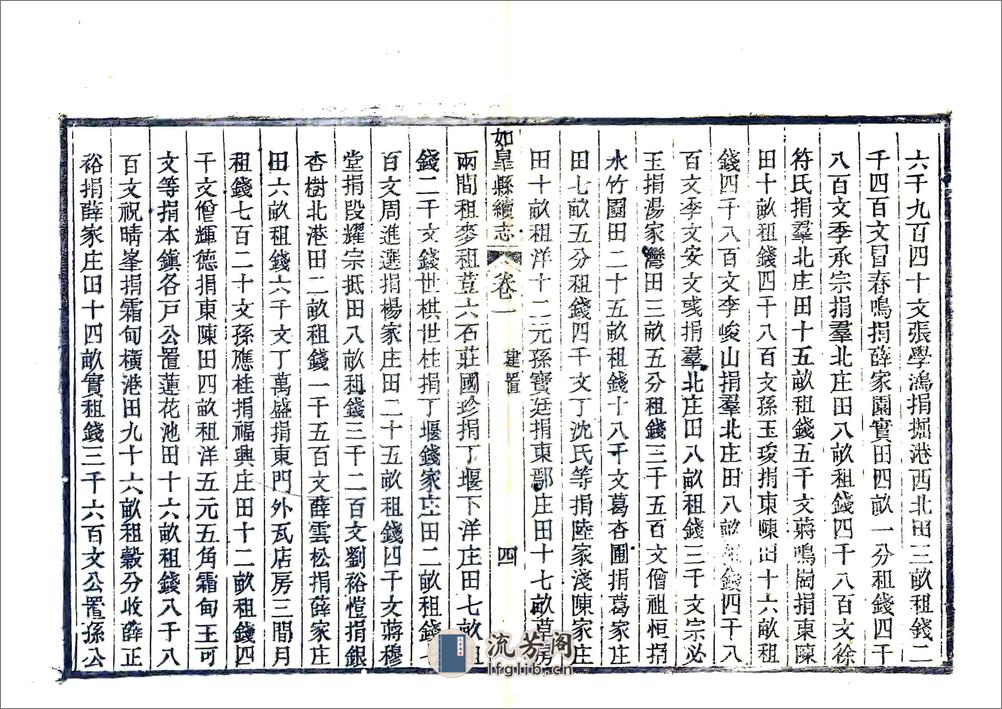 六千九百四十文張學鴻捐掘港西北田三畝租錢二
千四百文冒春鳴捐薛家園實田四畝一分租錢四千
八百文李承宗捐羣北庄田八畝租錢四千八百文徐
符氏捐羣北庄田十五畝租錢五千文蔣鳴崗捐東陳
田十畝租錢四千八百文孫玉琰捐東陳田十六畝租
錢四千八百文李峻山捐羣北庄田八畝租錢四千八
百文李文安文彧捐羣北庄田八畝租錢三千文宗必
玉捐湯家灣田三畝五分租錢三千五百文僧祖恒捐
水竹園田二十五畝租錢十八千文葛杏圃捐葛家庄
田七畝五分租錢四千文丁沈氏等捐陸家淺陳家庄
田十畝租洋十二元孫寶廷捐東鄢庄田十七畝草房
如皋縣續志 卷一 建置 四
兩間租麥租荳六石莊國珍捐丁堰下洋庄田七畝租
錢二千文錢世棋世柱捐丁堰錢家庄田二畝租錢七
百文周進選捐楊家庄田二十五畝租錢四千文蔣穆
堂捐段耀宗抵田八畝租錢三千二百文劉裕愷捐銀
杏樹北港田二畝租錢一千五百文薛雲松捐薛家庄
田六畝租錢六千文丁萬盛捐東門外瓦店房三間月
租錢七百二十文孫應桂捐福興庄田十二畝租錢四
千文僧輝德捐東陳田四畝租洋五元五角霜甸王可
文等捐本鎮各戶公置蓮花池田十六畝租錢八千八
百文祝晴峯捐霜甸橫港田九十六畝租穀分收薛正
裕捐薛家庄田十四畝實租錢三千六百文公置孫公
流芳阁
lfglib.cn